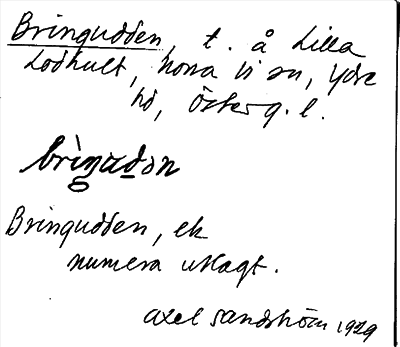 Bringudden, t. å Lilla
Lodhult, Norra Vi sn, Ydre
hd, Österg. l.
brìŋudən
Bringudden, ek
numera utlagt.
Axel Sandström 1929